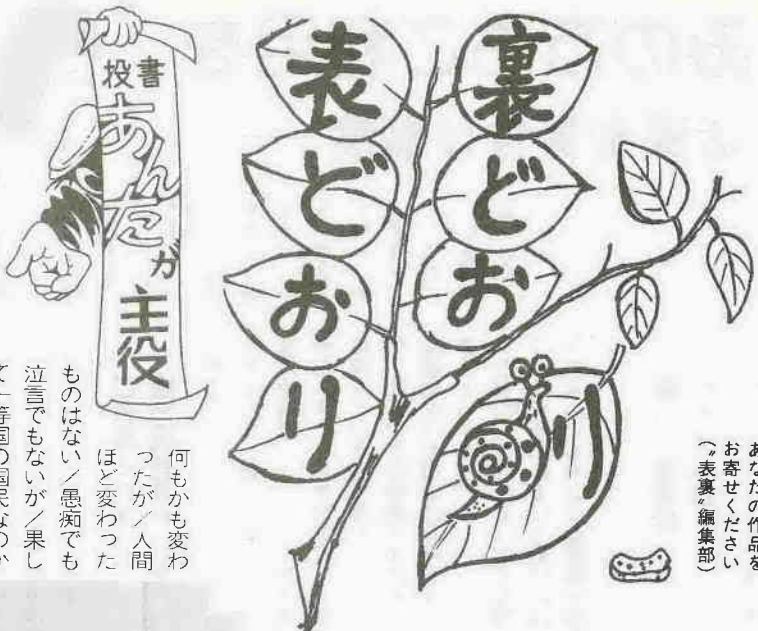 あなたの作品を
お寄せください
(〝表裏〟編集部)
裏どおり
表どおり
投書
あんたが主役
何もかも変わ
ったが/人間
ほど変わった
ものはない/愚痴でも
泣言でもないが/果し
て一等国の国民なのか